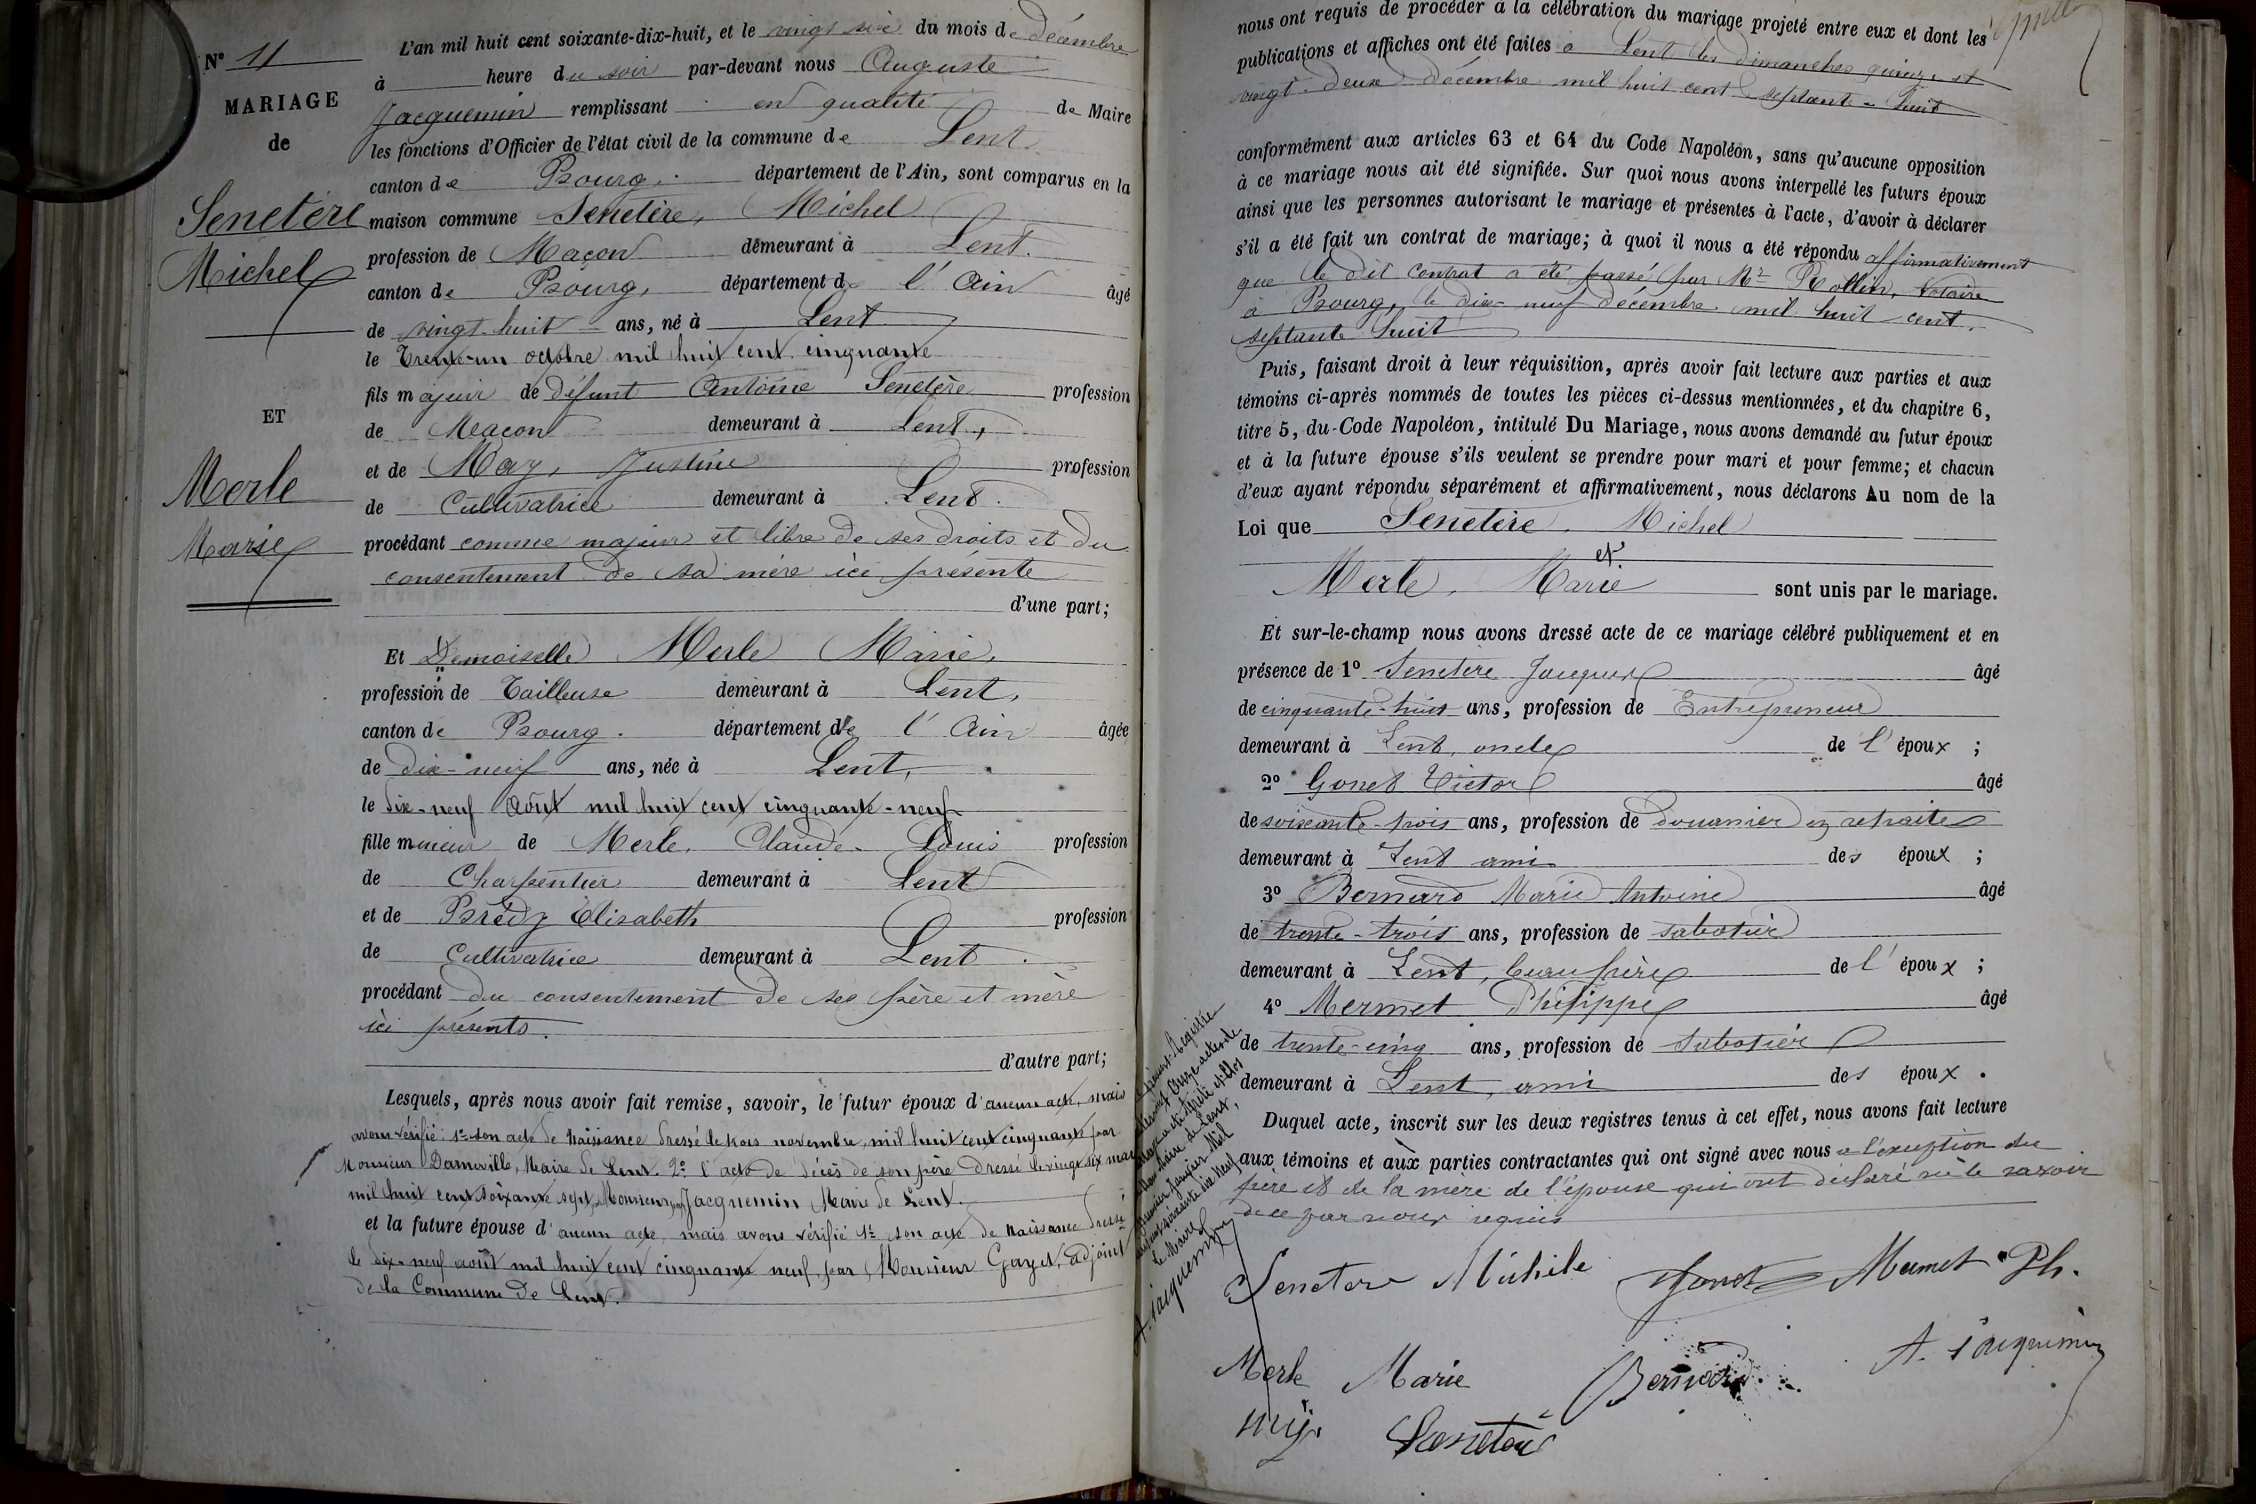 N° 11
MARIAGE
de
Senetère
Michel
ET
Merle
Marie
L'an mil huit cent soixante-dix-huit, et le vingt six du mois de décembre
à heure du soir par-devant nous Auguste
Jacquemin remplissant en qualité de Maire
les fonctions d'Officier de l'état civil de la commune de Lent
canton de Bourg. département de l'Ain, sont comparus en la
maison commune Senetère, Michel
profession de Maçon demeurant à Lent.
canton de Bourg, département de l'Ain âgé
de vingt-huit ans, né à Lent
le Trente-un octobre mil huit cent cinquante
fils majeur de défunt Antoine Senetère profession
de Maçon demeurant à Lent,
et de May, Justine profession
de Cultivatrice demeurant à Lent.
procédant comme majeur et libre de ses droits et du
consentement de sa mère ici présente
d'une part;
Et Demoiselle Merle Marie,
profession de Tailleuse demeurant à Lent,
canton de Bourg. département de l'Ain âgée
de dix-neuf ans, née à Lent,
le dix-neuf Août mil huit cent cinquante-neuf
fille mineur de Merle, Claude-Louis profession
de Charpentier demeurant à Lent
et de Brédy Elisabeth profession
de Cultivatrice demeurant à Lent.
procédant du consentement de ses père et mère
ici présents.
d'autre part;
Lesquels, après nous avoir fait remise, savoir, le futur époux d'aucun acte, mais
avons vérifié: 1° son acte de Naissance dressé le trois novembre, mil huit cent cinquante par
Monsieur Dameville, Maire de Lent. 2° l'acte de décès de son père dressé le vingt six mai
mil huit cent soixante sept, par Monsieur Jacquemin Maire de Lent.
et la future épouse d'aucun acte, mais avons vérifié 1° son acte de Naissance dressé
le dix-neuf août mil huit cent cinquante neuf, par Monsieur Gayet, adjoint
de la Commune de Lent.
nous ont requis de procéder à la célébration du mariage projeté entre eux et dont les
publications et affiches ont été faites à Lent les dimanches quinze et
vingt-deux décembre mil huit cent septante-huit
conformément aux articles 63 et 64 du Code Napoléon, sans qu'aucune opposition
à ce mariage nous ait été signifiée. Sur quoi nous avons interpellé les futurs époux
ainsi que les personnes autorisant le mariage et présentes à l'acte, d'avoir à déclarer
s'il a été fait un contrat de mariage; à quoi il nous a été répondu affirmativement
que le dit contrat a été passé par Mr Rollin, Notaire
à Bourg, le dix-neuf décembre mil huit cent
septante-huit
Puis, faisant droit à leur réquisition, après avoir fait lecture aux parties et aux
témoins ci-après nommés de toutes les pièces ci-dessus mentionnées, et du chapitre 6,
titre 5, du Code Napoléon, intitulé Du Mariage, nous avons demandé au futur époux
et à la future épouse s'ils veulent se prendre pour mari et pour femme; et chacun
d'eux ayant répondu séparément et affirmativement, nous déclarons Au nom de la
Loi que Senetère, Michel
et
Merle, Marie sont unis par le mariage.
Et sur-le-champ nous avons dressé acte de ce mariage célébré publiquement et en
présence de 1° Senetère Jacques âgé
de cinquante-huit ans, profession de Entrepreneur
demeurant à Lent, oncle de l'époux ;
2° Gonet Victor âgé
de soixante-trois ans, profession de douanier en retraite
demeurant à Lent ami des époux ;
3° Bernard Marie Antoine âgé
de trente-trois ans, profession de sabotier
demeurant à Lent, beau frère de l'époux ;
4° Mermet Philippe âgé
de trente-cinq ans, profession de Sabotier
demeurant à Lent, ami des époux.
Duquel acte, inscrit sur les deux registres tenus à cet effet, nous avons fait lecture
aux témoins et aux parties contractantes qui ont signé avec nous à l'exception du
père et de la mère de l'épouse qui ont déclaré ne le savoir
de ce par nous requis
Le présent Registre
Onze actes de
arrêté et clos
Maire de Lent,
premier janvier Mil
huit cent soixante dix Neuf
Le Maire
A. Jacquemin
Senetere Michele Gonet Mermet Ph.
Merle Marie Bernard A. Jacquemin
Senetère